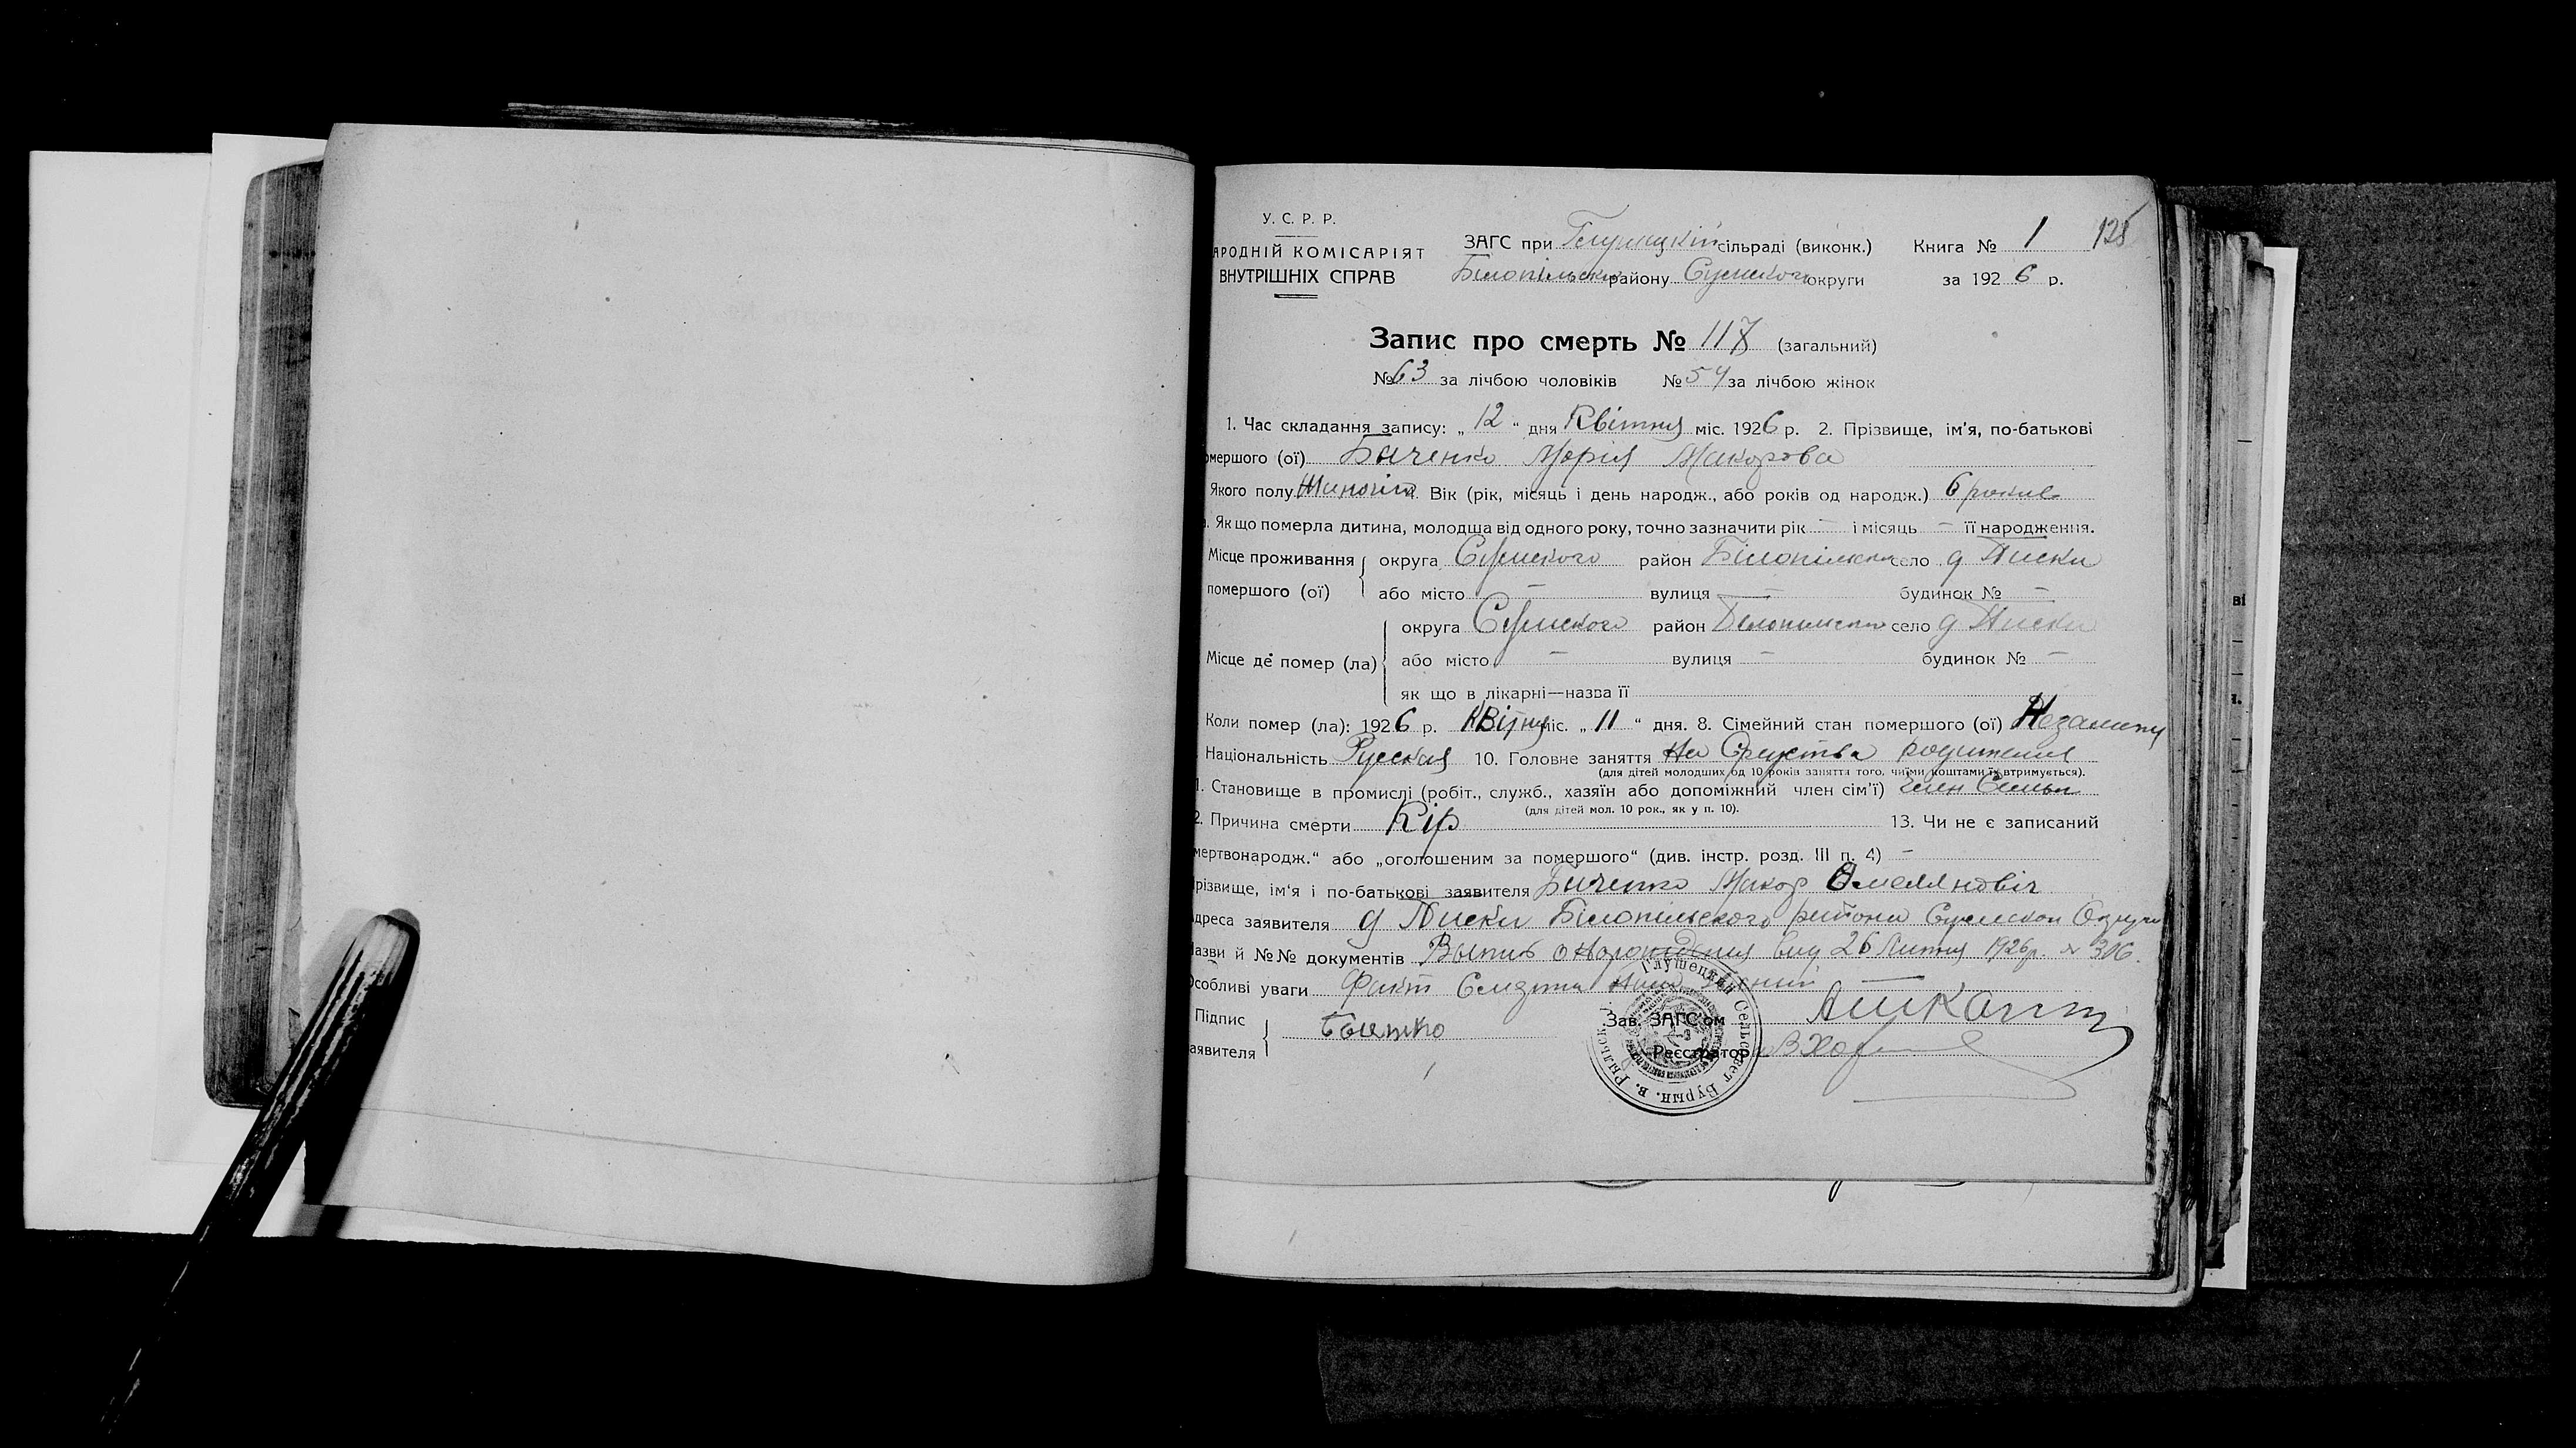 У. С. Р. Р.
АРОДНІЙ КОМІСАРІЯТ
ВНУТРІШНІХ СПРАВ
ЗАГС при сільраді (виконк.) Книга № 1 128
Білопільско району Сумского округи за 1926 р.
Запис про смерть № 117 (загальний)
№ 63 за лічбою чоловіків № 54 за лічбою жінок
1. Час складання запису: „ 12 “ дня Квітня міс. 1926 р. 2. Прізвище, ім'я, по-батькові
омершого (ої) Баченко Марія Макарова
Якого полу Жиночіт. Вік (рік, місяць і день народж., або років од народж.) 6 років
. Як що померла дитина, молодша від одного року, точно зазначити рік – і місяць – її народження.
Місце проживання округа Сумского район Білопільски село д Писки
помершого (ої) або місто – вулиця – будинок № –
округа Сумского район село д Писки
Місце де помер (ла) або місто – вулиця – будинок № –
як що в лікарні—назва її
Коли помер (ла): 1926 р. Квітня міс. „ 11 “ дня. 8. Сімейний стан помершого (ої)
Національність Русская 10. Головне заняття На Средства родителей
(для дітей молодших од 10 років заняття того, чиїми коштами їх втримується).
1. Становище в промислі (робіт., служб., хазяїн або допоміжний член сім'ї) член Семьи
(для дітей мол. 10 рок., як у п. 10).
2. Причина смерти Кір 13. Чи не є записаний
мертвонародж.“ або „оголошеним за помершого“ (див. інстр. розд. III п. 4) –
різвище, ім'я і по-батькові заявителя Баченко Макар Омелянович
дреса заявителя д Писки Білопільского района Сумской Округи
азви й №№ документів Выпись о Нарождения 26 Лютня 1926р. № 306.
Особливі уваги Факт
Підпис
аявителя
Зав. ЗАГС'ом
Реєстратор
Глушецкий Сельсовет Бурын. в. Рыльск.